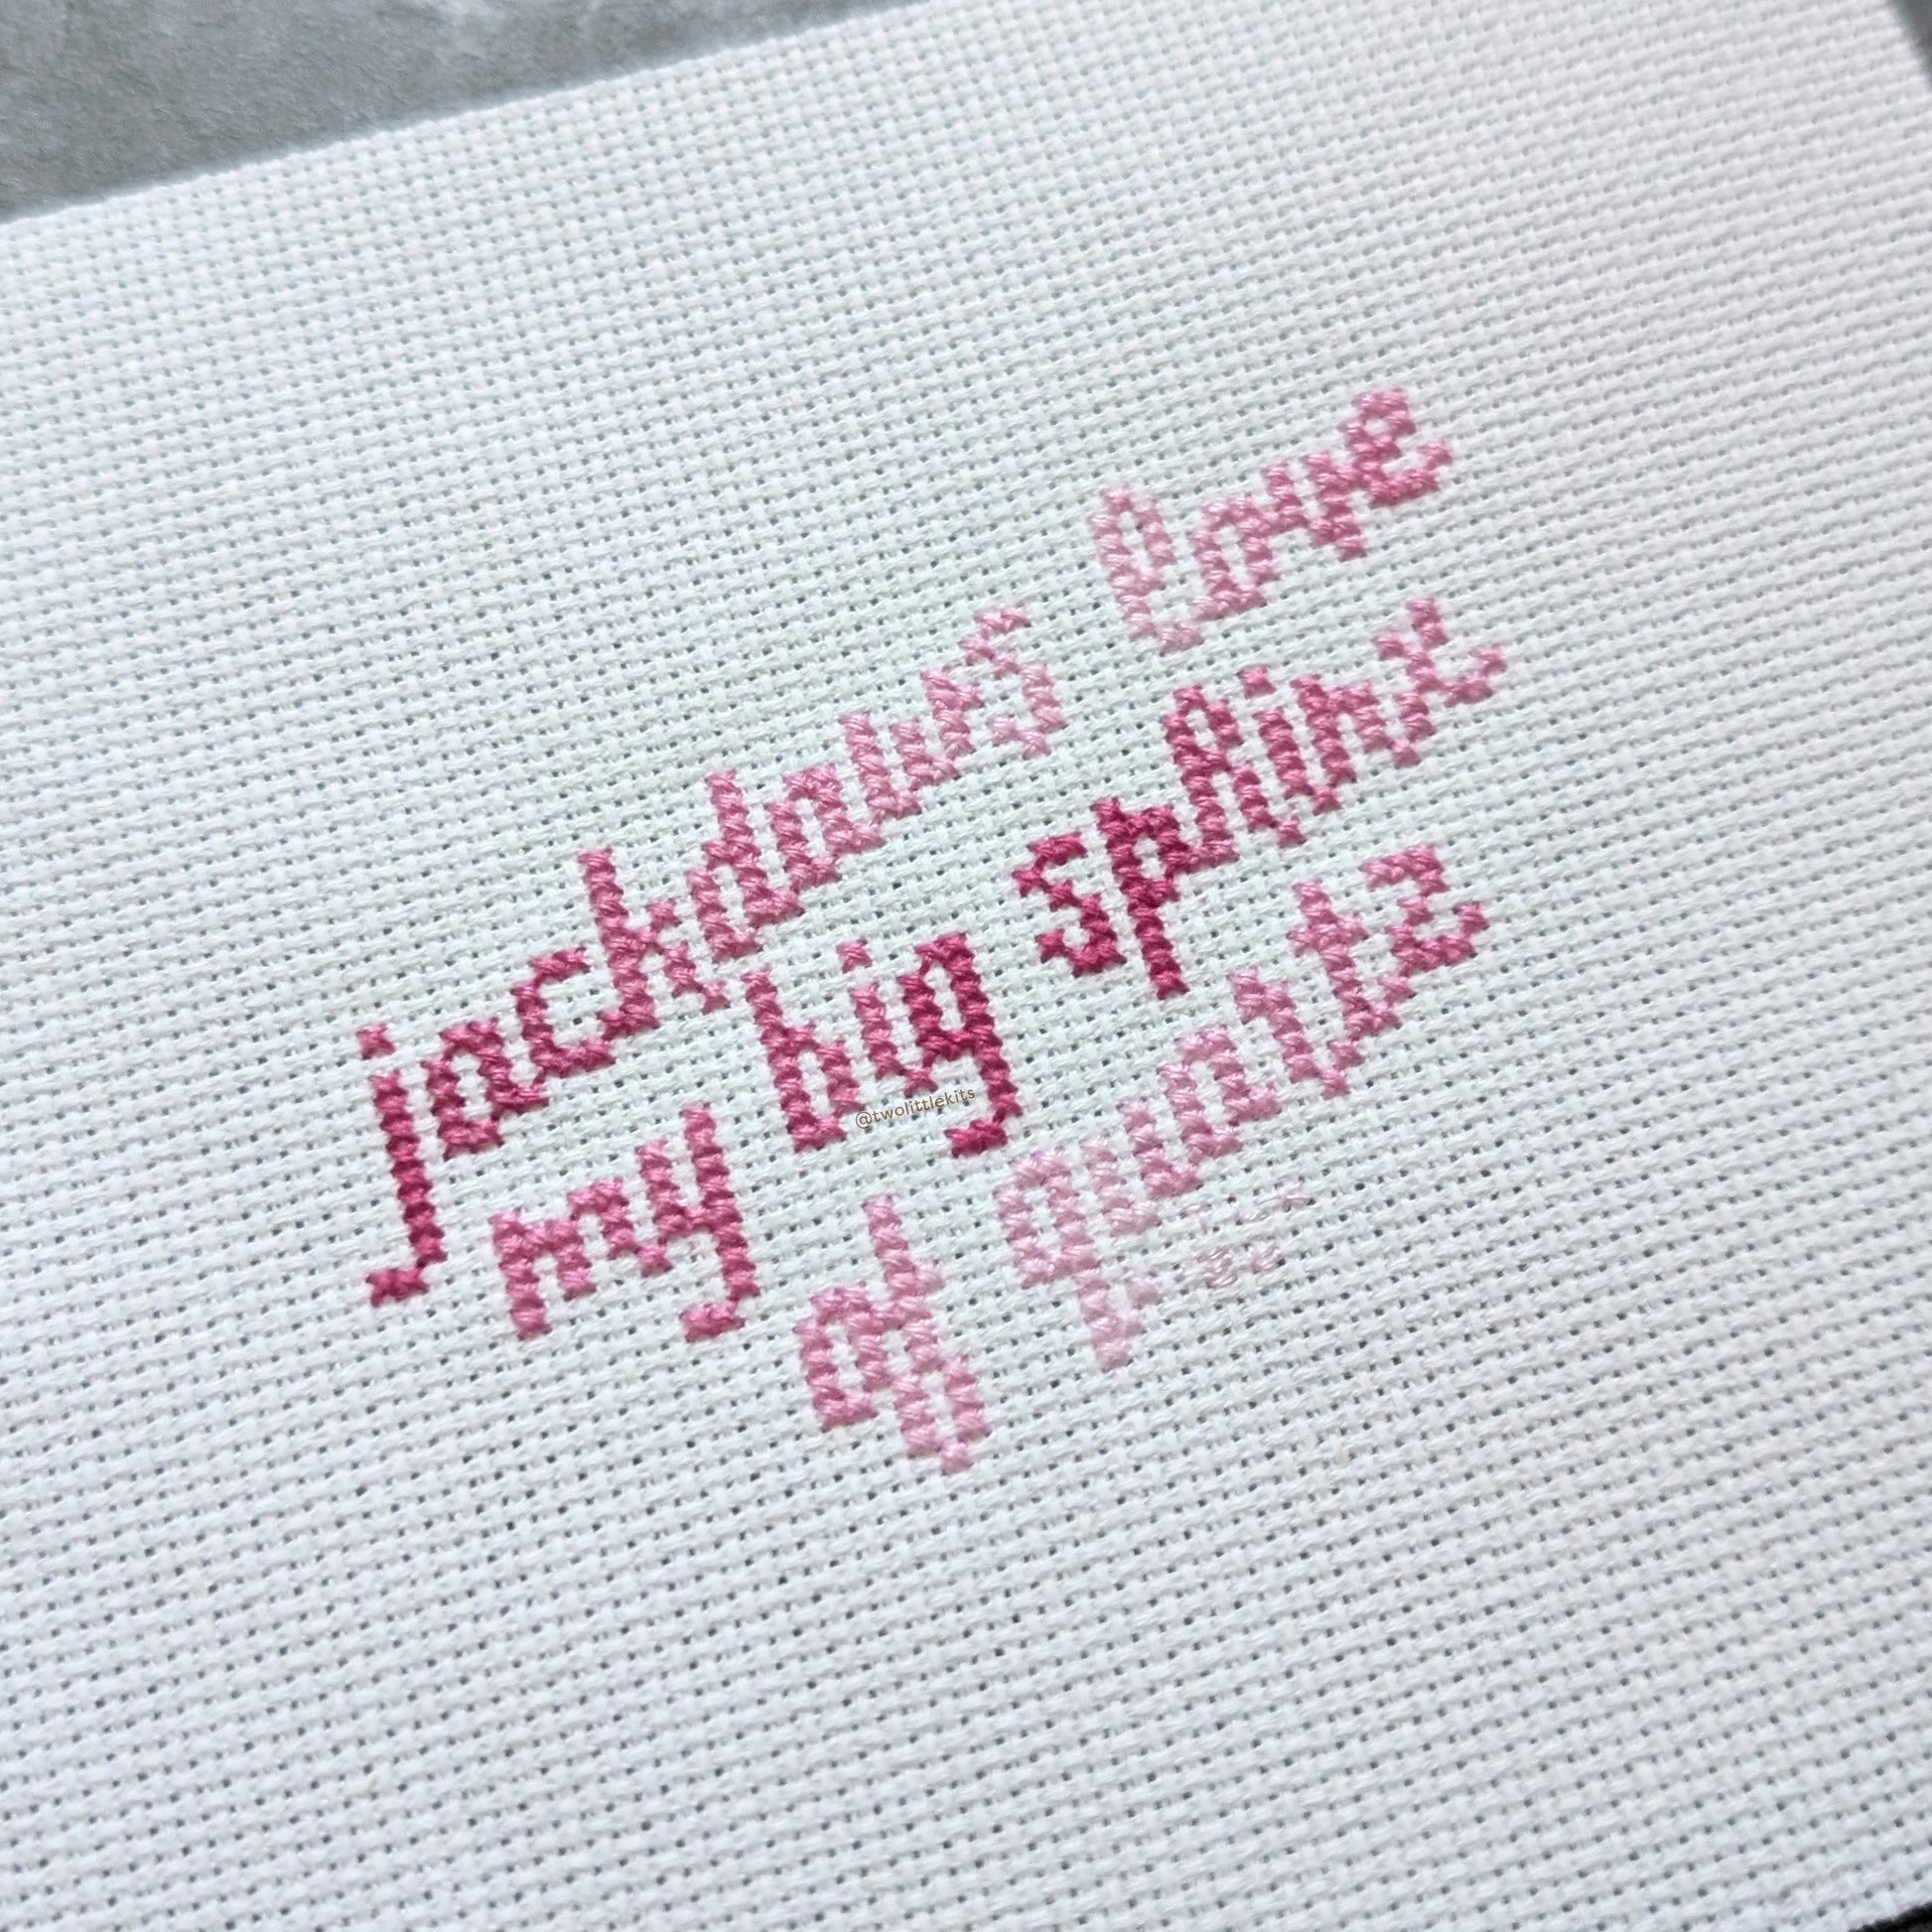 jackdaws love
my big sphinx
of quartz
@twolittlekits